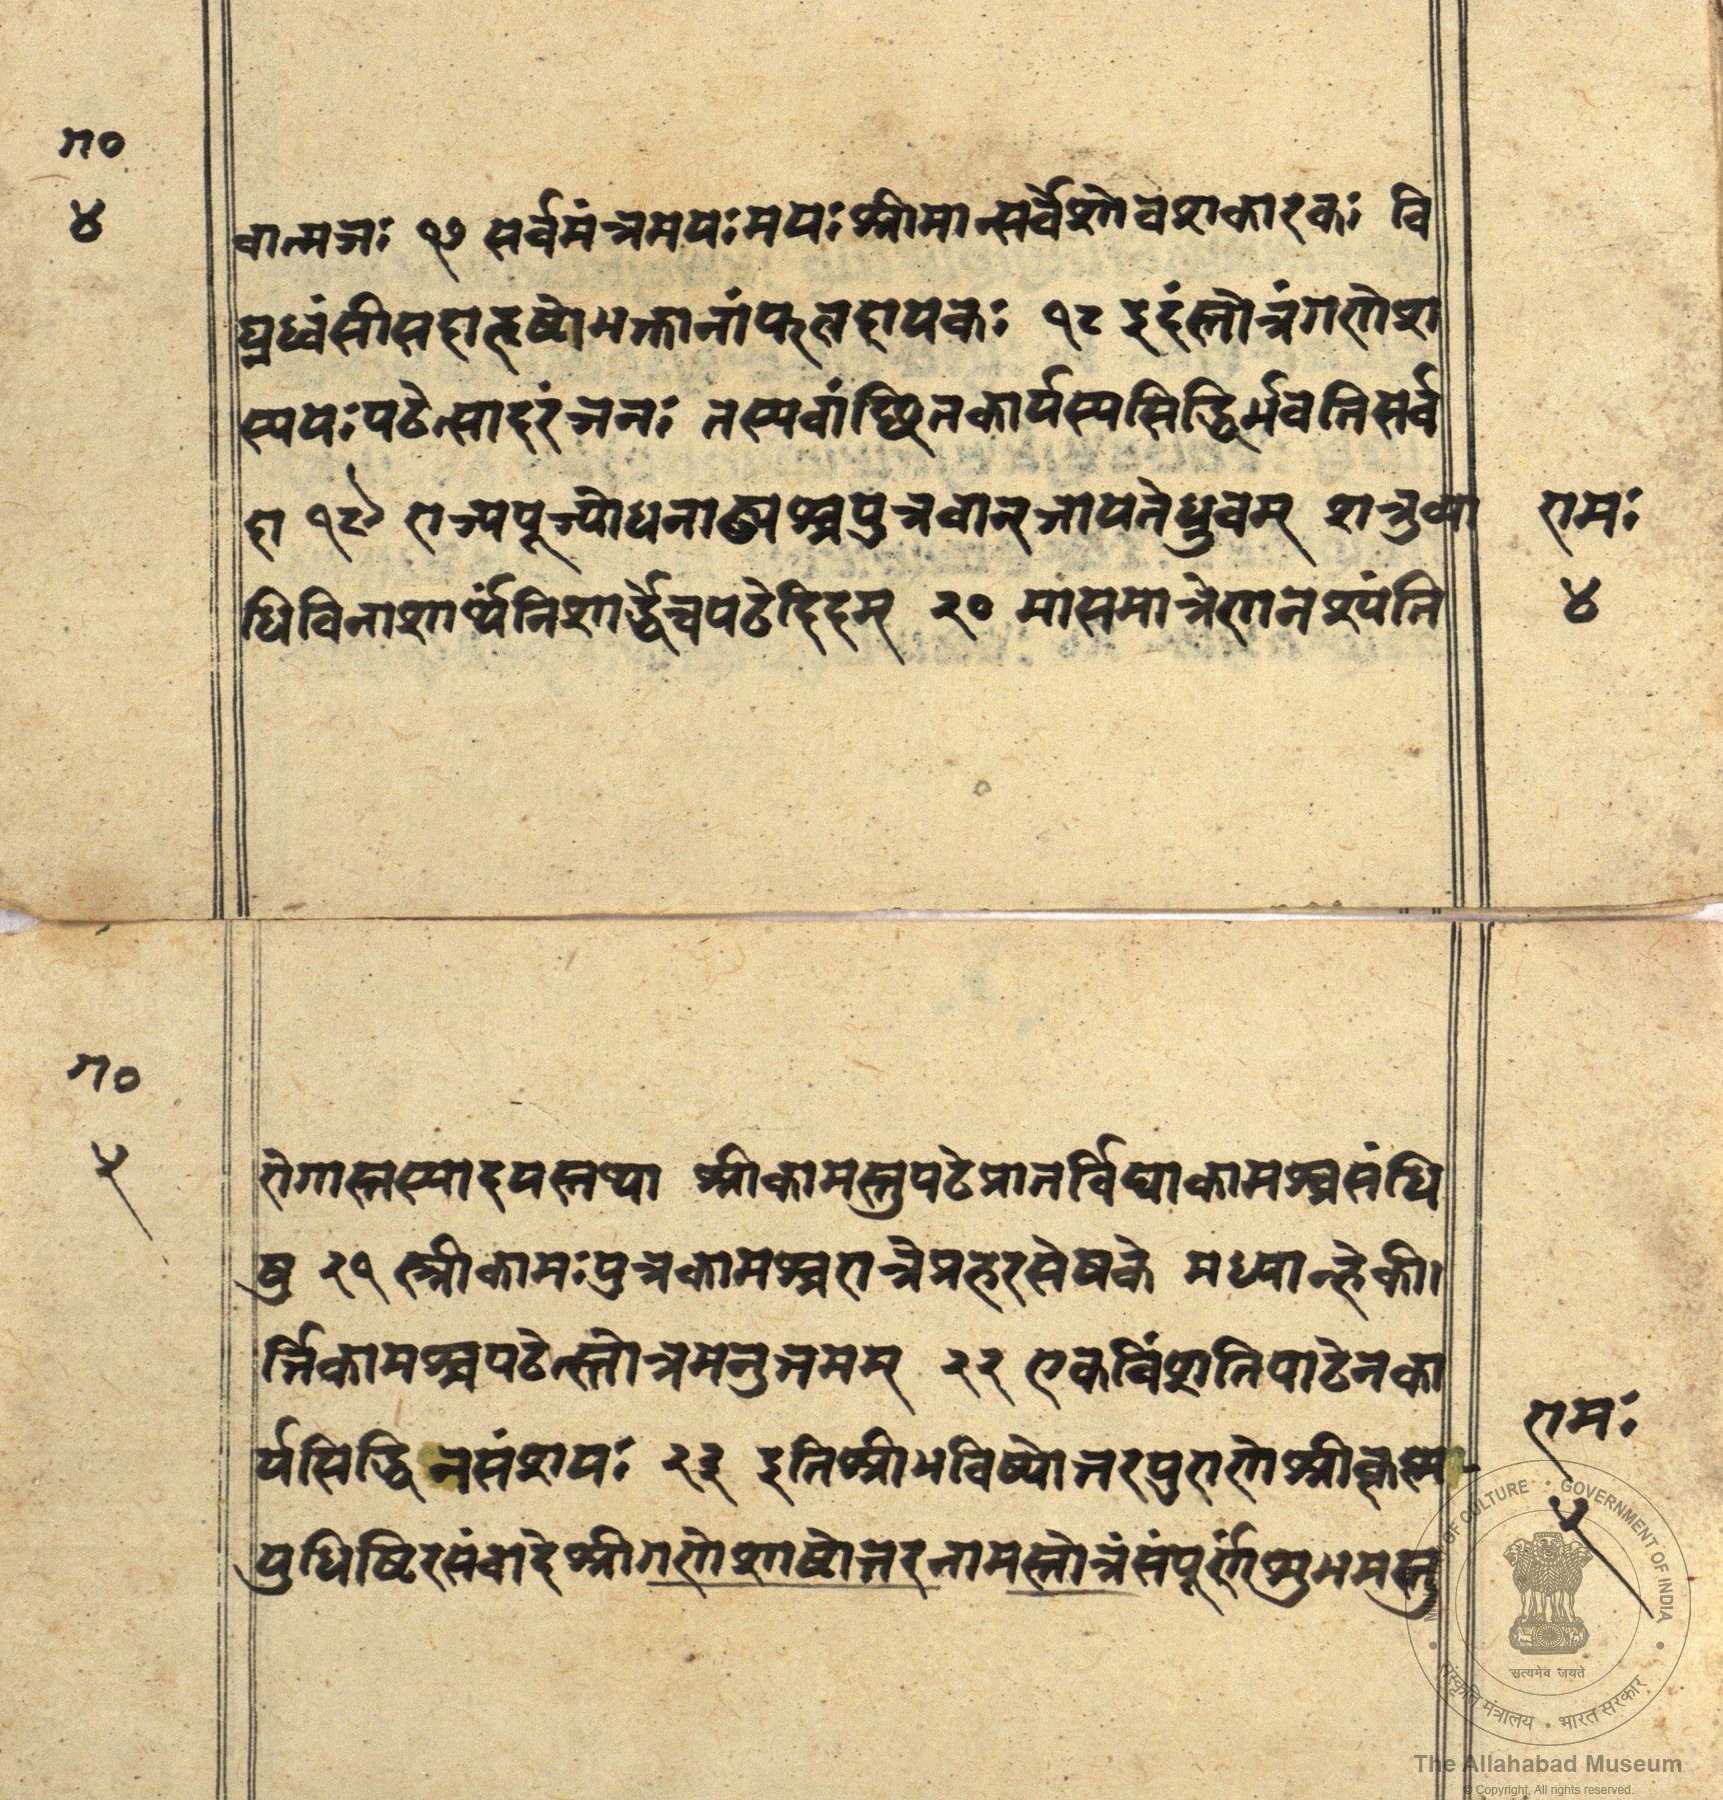 ग०
४
वात्मजः १७ सर्वमंत्रमयः मयः श्रीमान्सर्वेशोवशकारकः वि
घ्नध्वंसीसदाहृष्टोभक्तानांफलदायकः १८ इदंस्तोत्रंगणेश
स्ययःपठेत्सादरंजनः तस्यवांछितकार्यस्यसिद्धिर्भवतिसर्व
दा १९ राज्यपूज्योधनाढ्यश्चपुत्रवान्जायतेध्रुवम् शत्रुव्या
धिविनाशार्थंनिशार्द्धेचपठेदिदम् २० मासमात्रेणनश्यंति
रामः
४
ग०
५
रोगास्तस्यादयस्तथा श्रीकामस्तुपठेप्रातर्विद्याकामश्चसंधि
षु २१ स्त्रीकामःपुत्रकामश्चरात्रेप्रहरसेषके मध्यान्हेकी।
र्त्तिकामश्चपठेत्स्तोत्रमनुत्तमम् २२ एकविंशतिपाठेनका
र्यसिद्धिनसंशयः २३ इतिश्रीभविष्योत्तरपुराणेश्रीकृष्ण-
युधिष्टिरसंवादेश्रीगणेशाष्टोत्तरनामस्तोत्रंसंपूर्णंशुभमस्तु
रामः
५
MINISTRY OF CULTURE · GOVERNMENT OF INDIA
सत्यमेव जयते
संस्कृति मंत्रालय · भारत सरकार
The Allahabad Museum
© Copyright, All rights reserved.